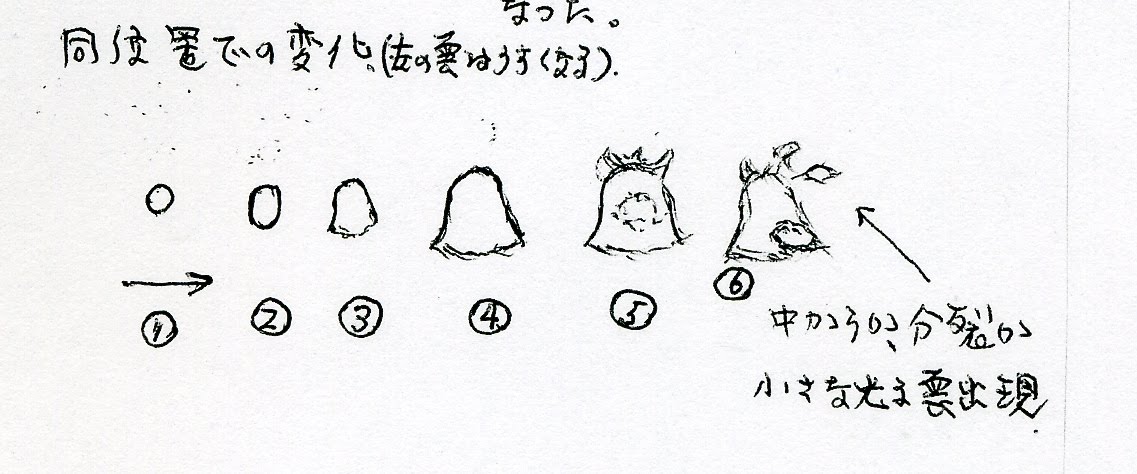 なった。
同位置での変化、(左の雲はうすくなる).
① ② ③ ④ ⑤ ⑥
中から小、分裂小
小さな光る雲出現.